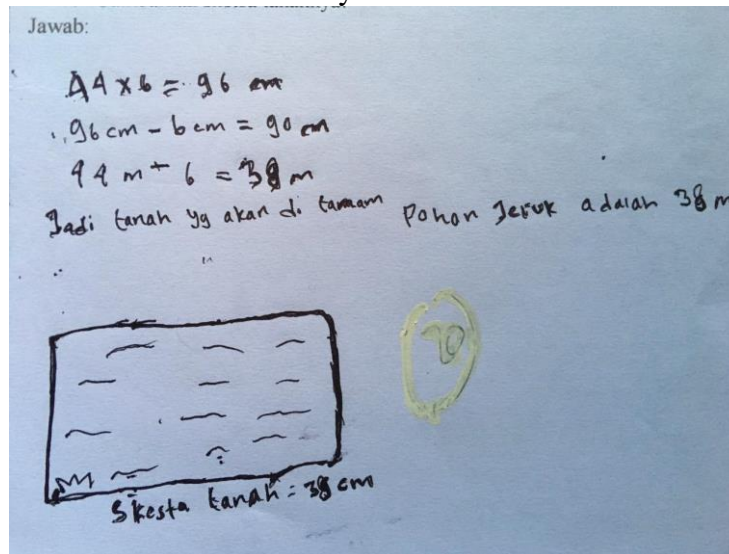 Jawab:
44 x 6 = 96 cm
96 cm - 6 cm = 90 cm
44 m + 6 = 38 m
Jadi tanah yg akan di tanam Pohon Jeruk adalah 38 m
70
Skesta tanah = 38 cm